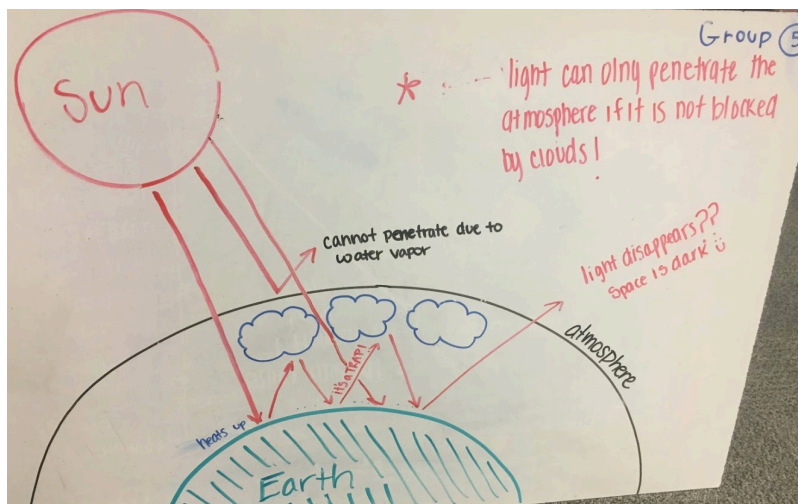 Group 5
Sun
* light can olny penetrate the
atmosphere if it is not blocked
by clouds!
cannot penetrate due to
water vapor
light disappears??
Space is dark
atmosphere
it's a TRAP!
heats up
Earth